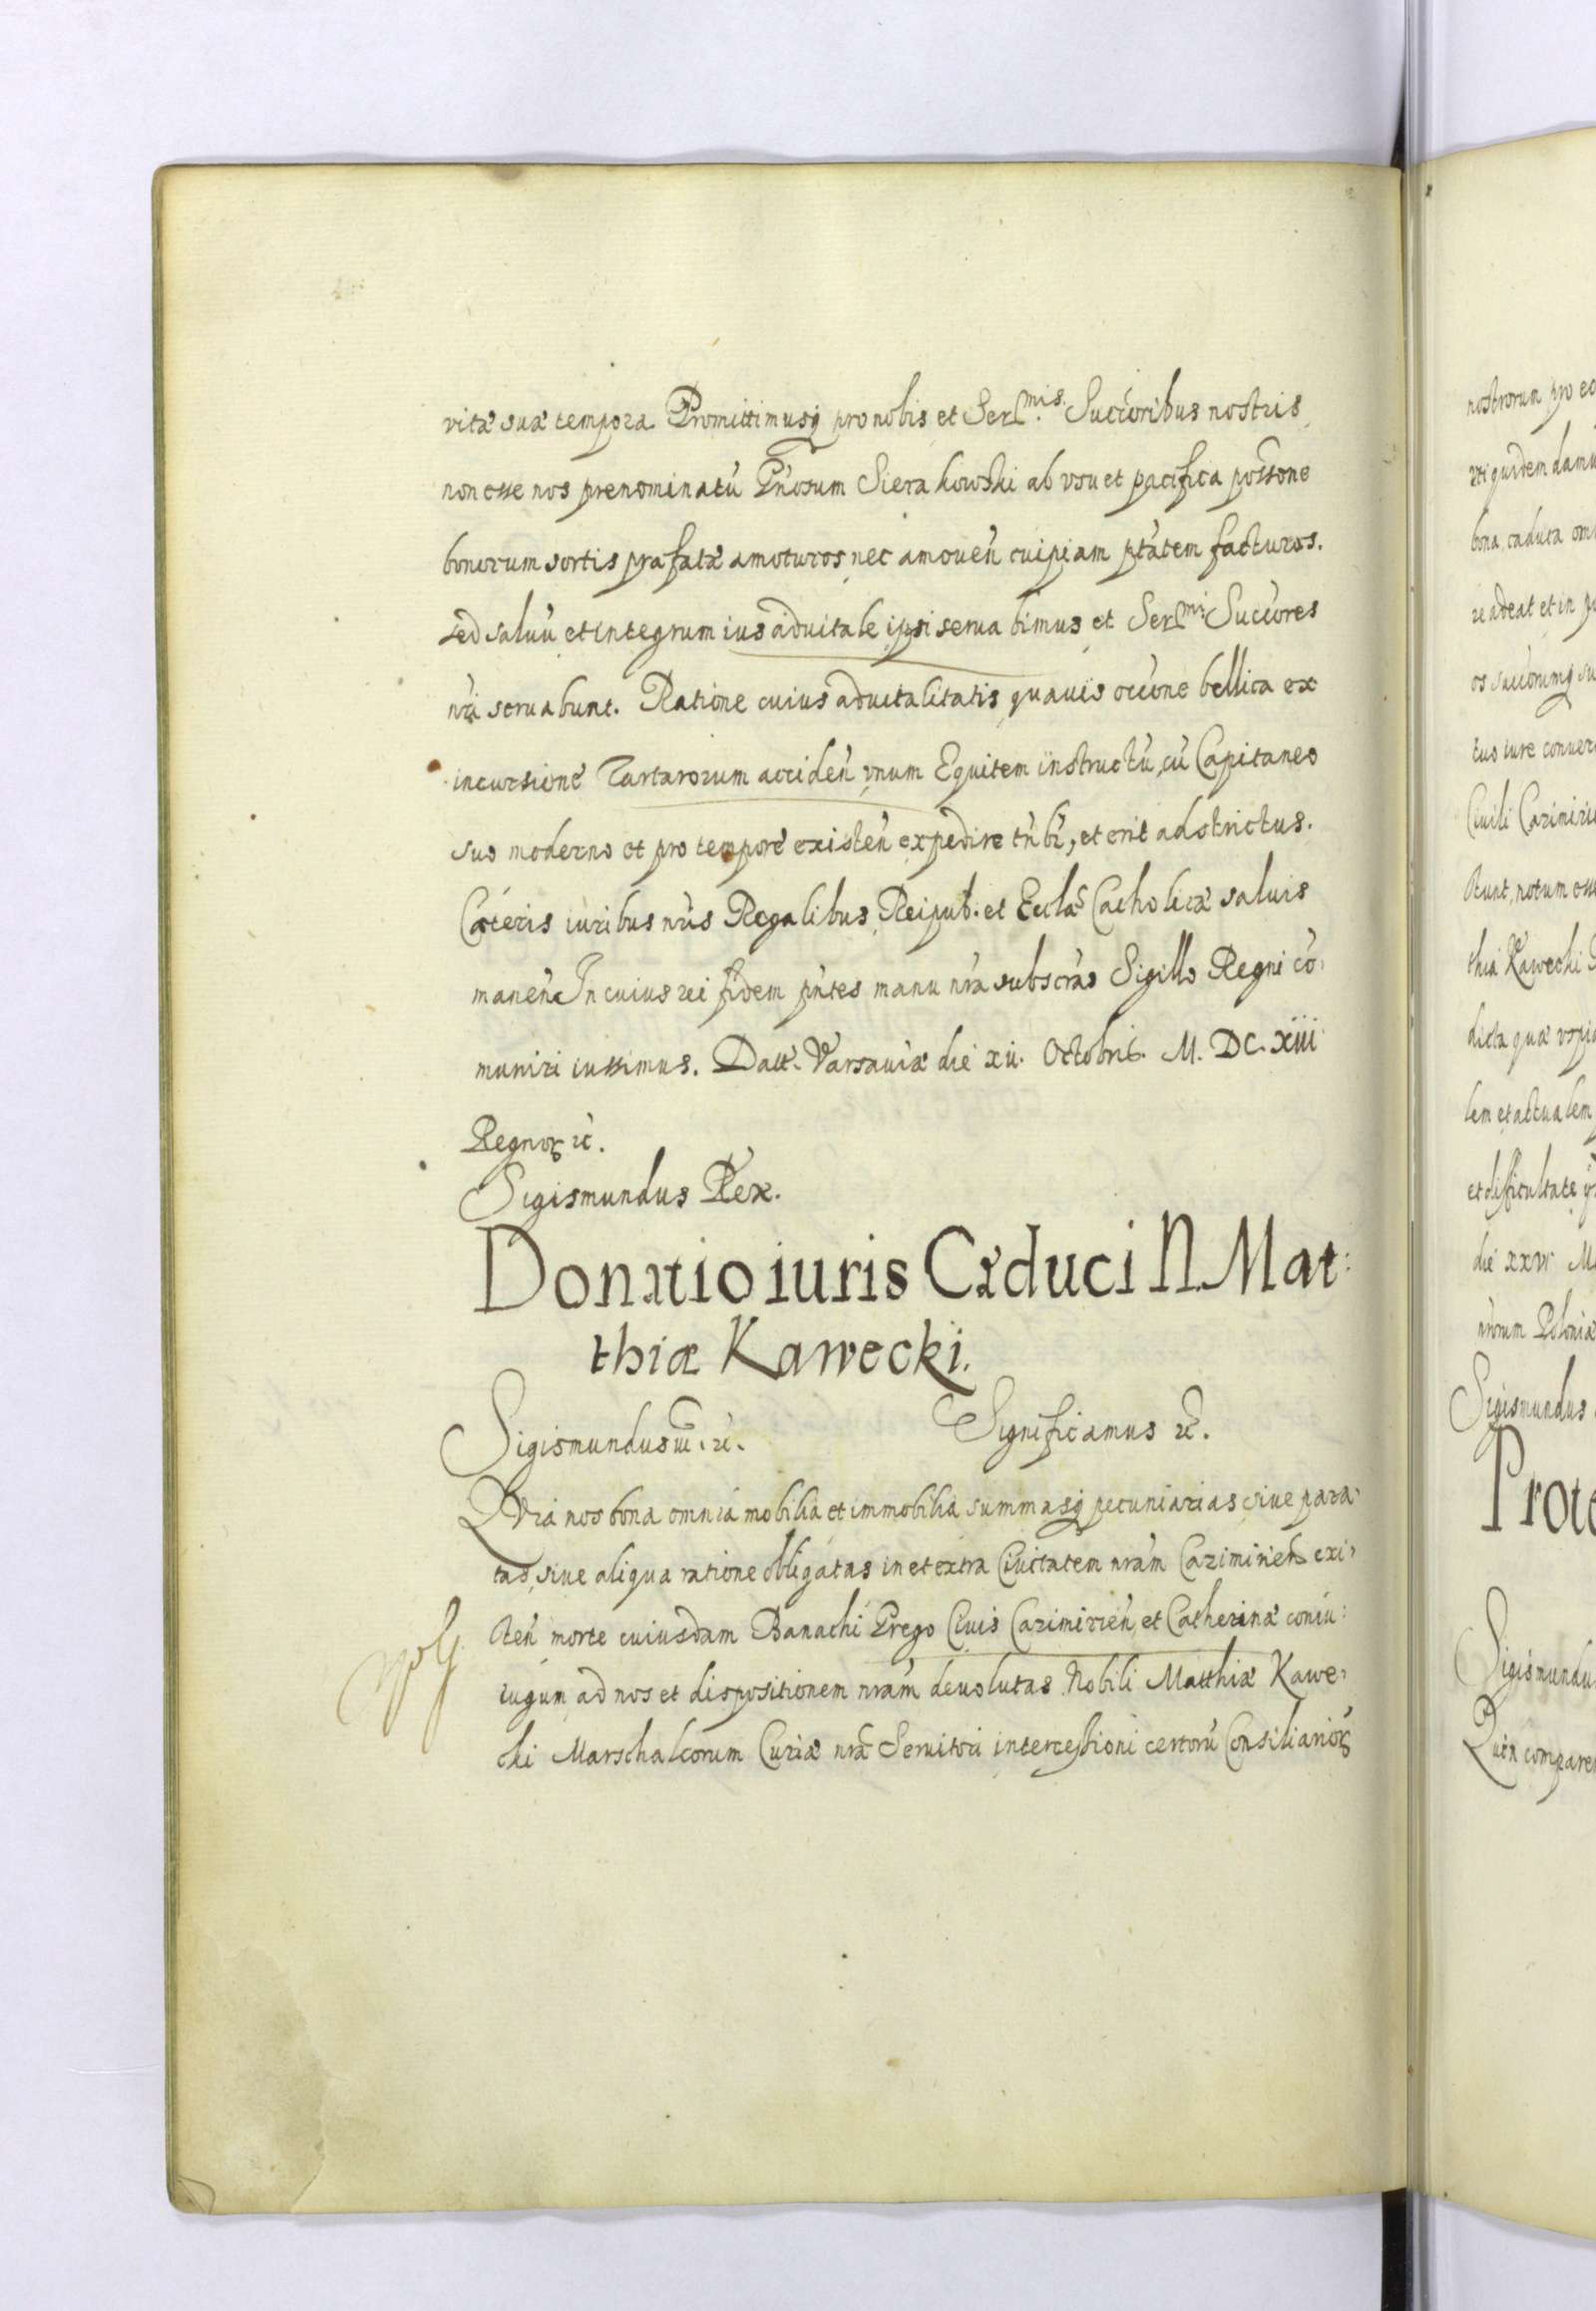 vitæ suæ tempora. Promittimusq pro nobis et Ser^mis. Succoribus nostris,
non esse nos prenominatū Gnosum Sierakowski ab vsu et pacifica possone
bonorum sortis præfatæ amoturos, nec amoueñ cuipiam ptatem facturos.
sed saluū et integrum ius aduitale ipsi seruabimus et Ser^mi Succores
nri seruabunt. Ratione cuius aduitalitatis quauis occone bellica ex
incursione Tartarorum acciden vnum Equitem instructū cū Capitaneo
suo moderno et pro tempore existeñ expedire tñbr, et erit adstrictus.
Cæteris iuribus nris Regalibus, Reipub. et Ecclæ Catholicæ saluis
maneñ. In cuius rei fidem pntes manu nra subscras Sigillo Regni cō
muniri iussimus. Datt. Varsauiæ die xii. Octobris. M. DC. xiii
Regnor etc.
Sigismundus Rex.
Donatio iuris Caduci N. Mat:
thiæ Kawecki.
Sigismundus etc. Significamus etc.
Quia nos bona omnia mobilia et immobilia summasq pecuniarias siue para
tas, siue aliqua ratione obligatas in et extra Ciuitatem nram Cazimirieñ exi
steñ morte cuiusdam Banachi Grego Ciuis Cazimirieñ et Catherinæ coniu:
iugum ad nos et dispositionem nram deuolutas Nobili Matthiæ Kawe
cki Marschalcorum Curiæ nræ Seruitori intercessioni certorū Consiliarior
nostrorum pro eo
vti quidem damu
bona caduca om
dicta quæ vspia
lem et actualem
die xxvi
Sigismundus
Prote
Sigismundu